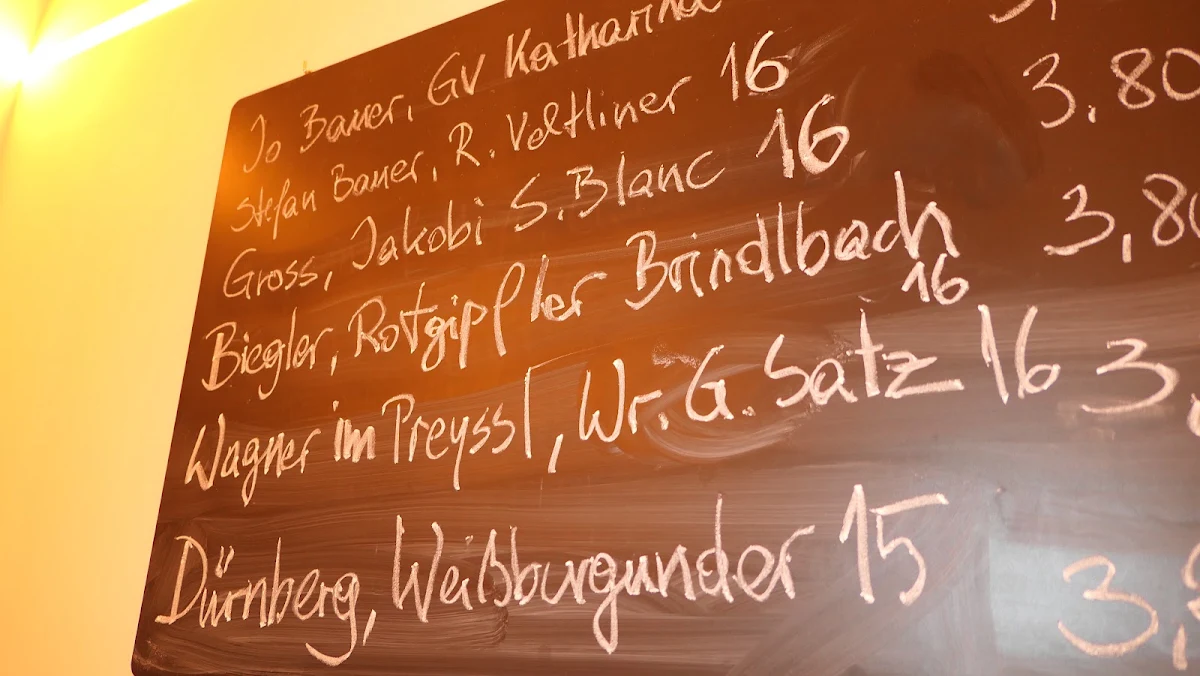 Jo Bauer, GV Katharina
Stefan Bauer, R. Veltliner 16 3,80
Gross, Jakobi S. Blanc 16 3,80
Biegler, Rotgipfler Brindlbach 16
Wagner im Preyssl, Wr. G. Satz 16 3,
Dürnberg, Weißburgunder 15 3,